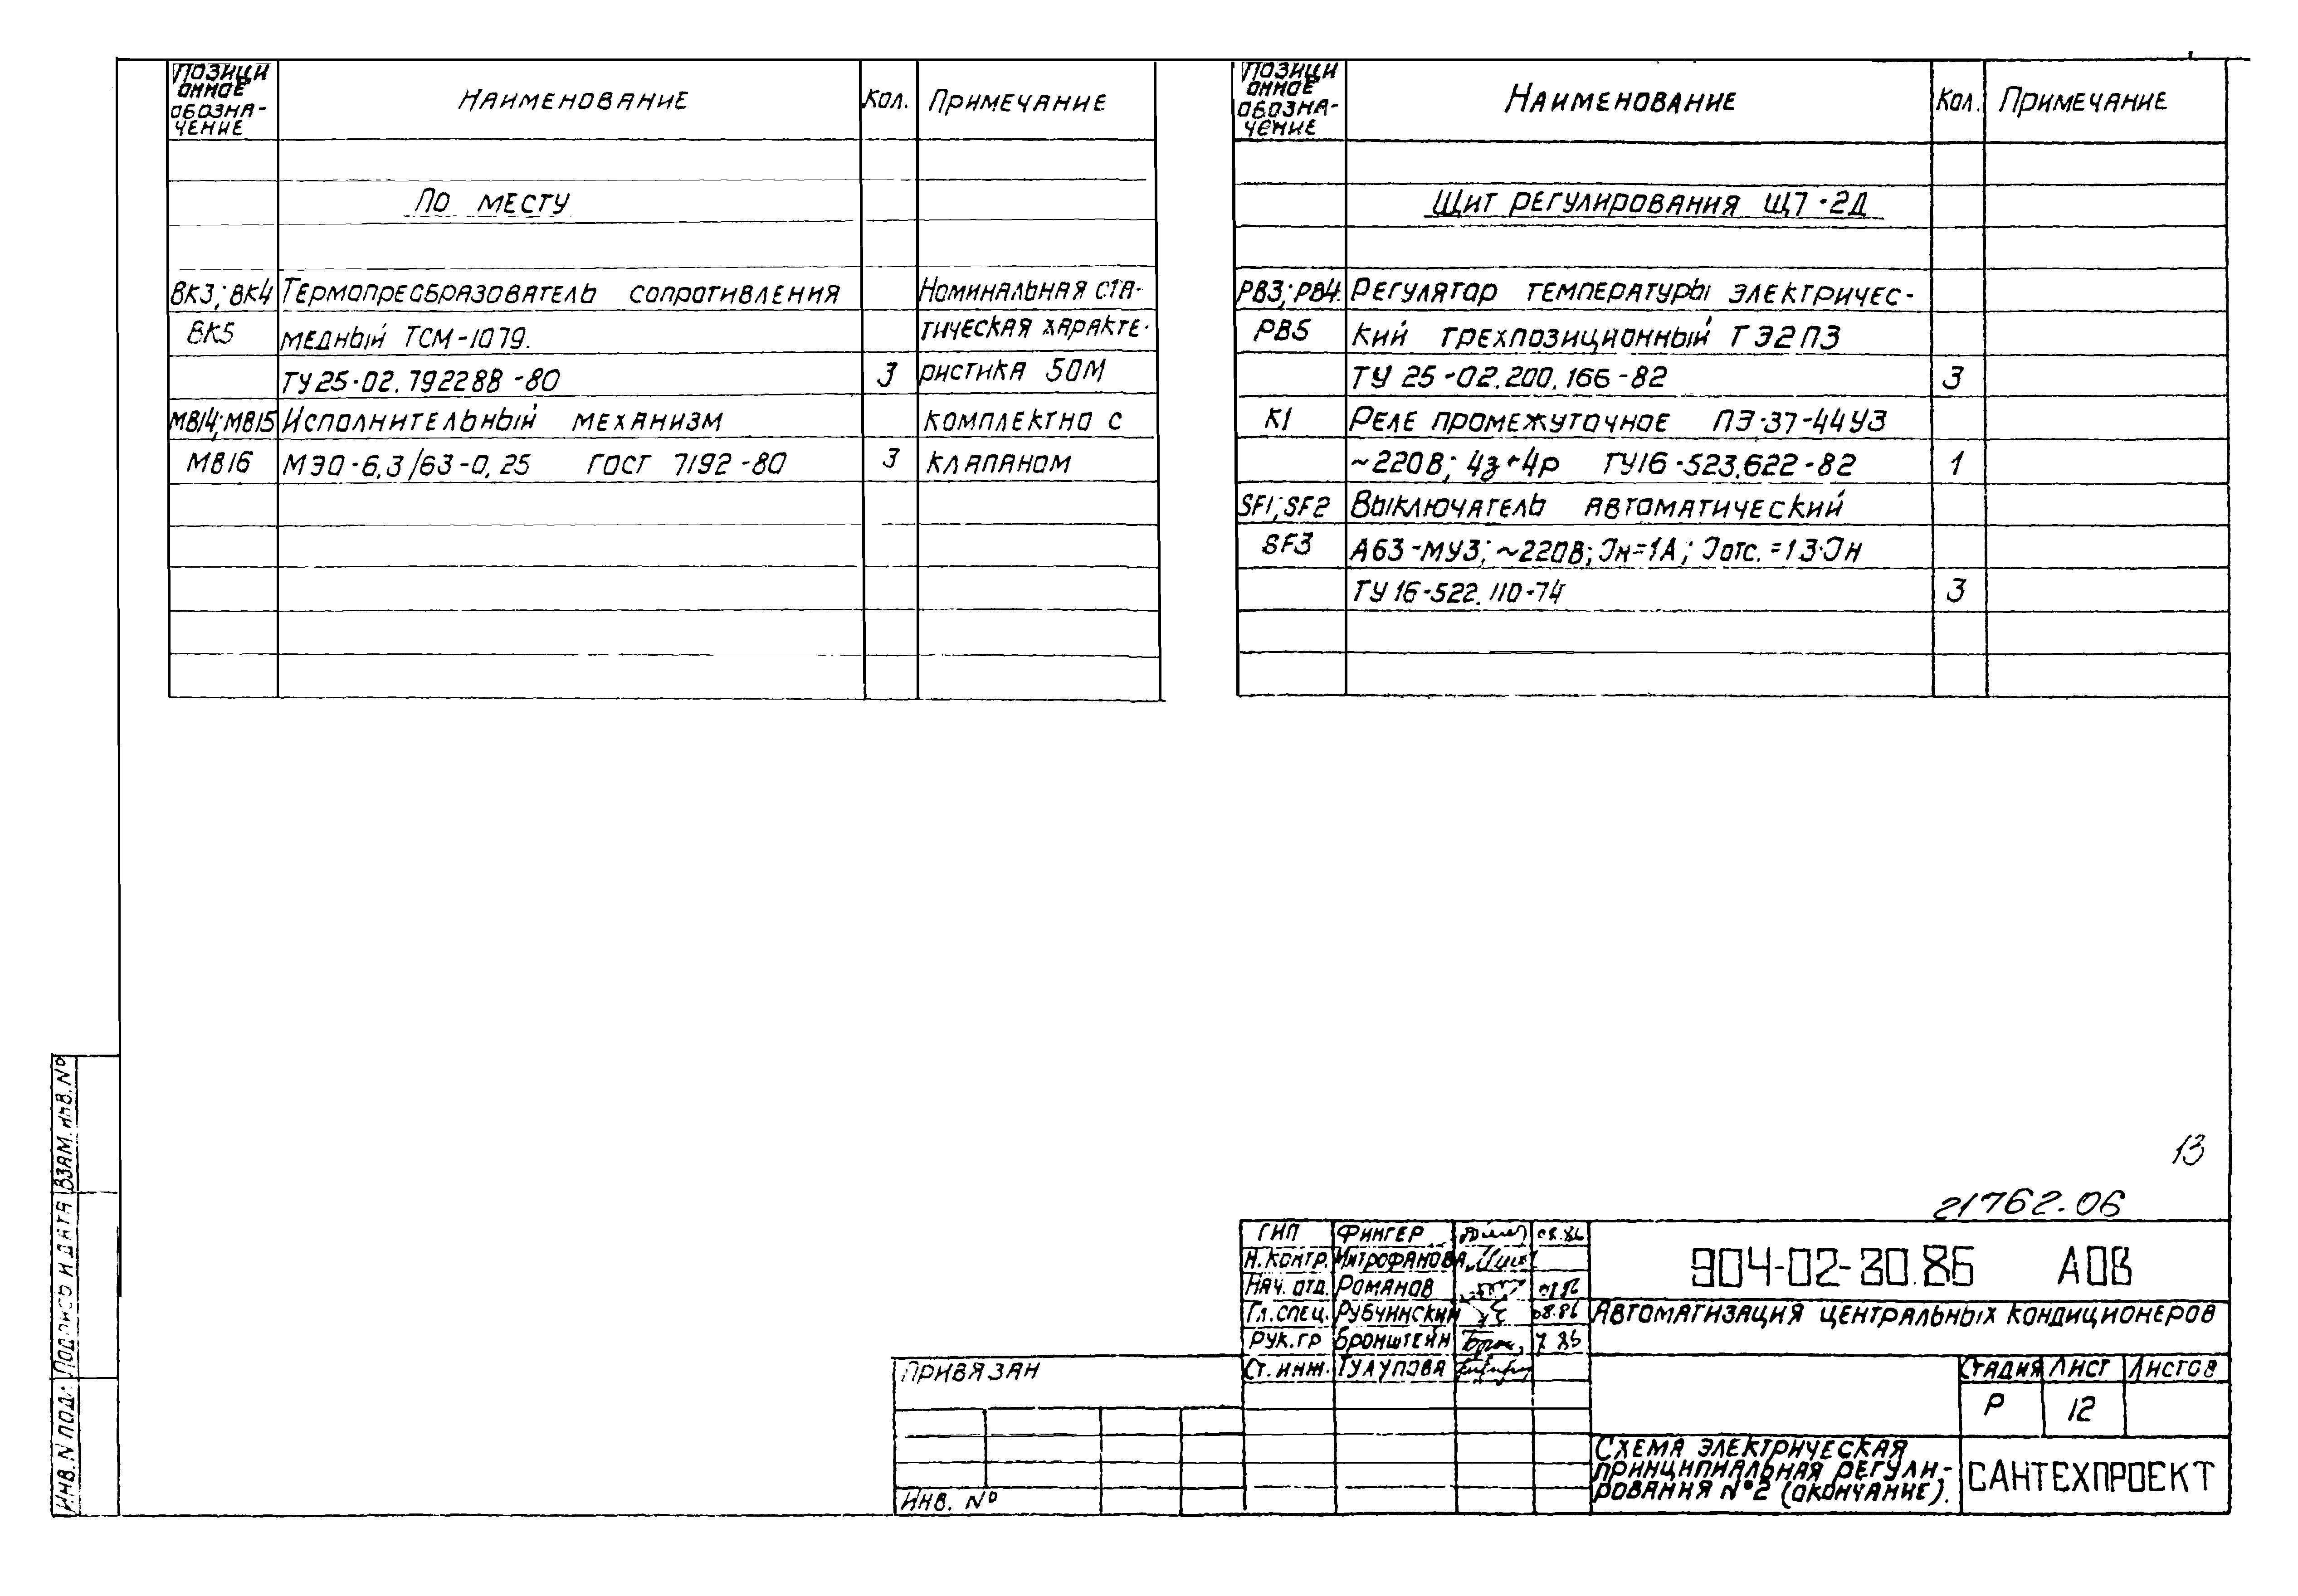 Позици
онное
обозна-
чение
Наименование
Кол.
Примечание
По месту
ВК3; ВК4 Термопреобразователь сопротивления Номинальная ста-
ВК5 медный ТСМ-1079. тическая характе-
ТУ 25-02.792288-80 3 ристика 50М
МВ14; МВ15 Исполнительный механизм комплектно с
МВ16 МЭО-6,3/63-0,25 ГОСТ 7192-80 3 клапаном
Позици
онное
обозна-
чение
Наименование
Кол.
Примечание
Щит регулирования Щ7-2Д
РВ3; РВ4 Регулятор температуры электричес-
РВ5 кий трехпозиционный ТЭ2П3
ТУ 25-02.200.166-82 3
К1 Реле промежуточное ПЭ-37-44У3
~220В; 4з+4р ТУ16-523.622-82 1
SF1; SF2 Выключатель автоматический
SF3 А63-МУ3; ~220В; Iн=1А; Iотс.=1.3·Iн
ТУ 16-522.110-74 3
13
21762.06
ГИП Фингер 08.86
Н.контр. Митрофанова
Нач. отд. Романов
Гл.спец. Рубчинский 08.86
Рук.гр Бронштейн 7 86
Ст. инж. Тулупова
904-02-30.86 АОВ
Автоматизация центральных кондиционеров
Стадия Лист Листов
Р 12
Схема электрическая
принципиальная регули-
рования №2 (окончание).
САНТЕХПРОЕКТ
Привязан
Инв. №
Взам. инв. №
Подпись и дата
Инв. N под.